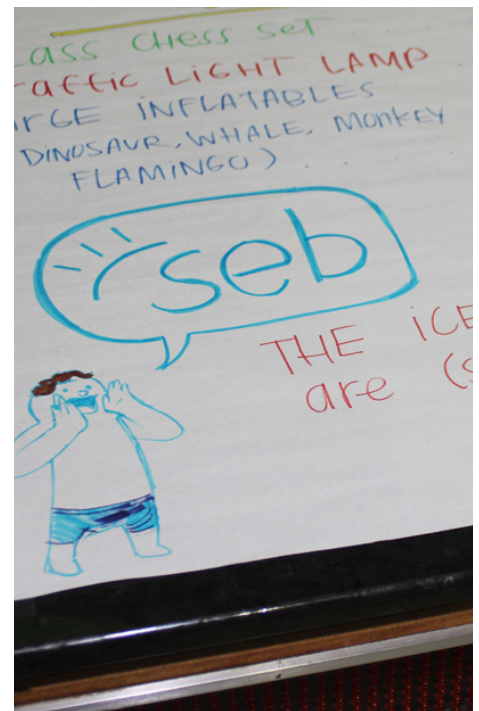 ass chess set
affic LIGHT LAMP
rGE INFLATABLES
DINOSAUR, WHALE, MONKEY
FLAMINGO)
seb
THE iCE
are (s